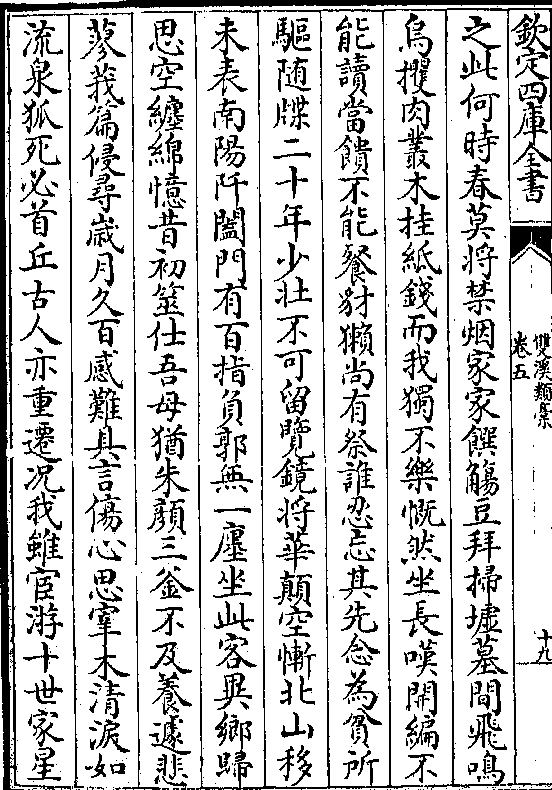 欽定四庫全書
雙溪類集
卷五
十九
之此何時春莫將禁烟家家饌觴豆拜掃墟墓間飛鳴
烏攫肉叢木挂紙錢而我獨不樂慨然坐長嘆開編不
能讀當饋不能餐豺獺尚有祭誰忍忘其先念為貧所
驅随牒二十年少壯不可留覽鏡将華顛空慚北山移
未表南陽阡闔門有百指負郭無一廛坐此客異鄉歸
思空纏綿憶昔初筮仕吾母猶朱顔三釡不及養遽悲
蓼莪篇侵尋嵗月久百感難具言傷心思宰木清淚如
流泉狐死必首丘古人亦重遷况我雖宦游十世家星